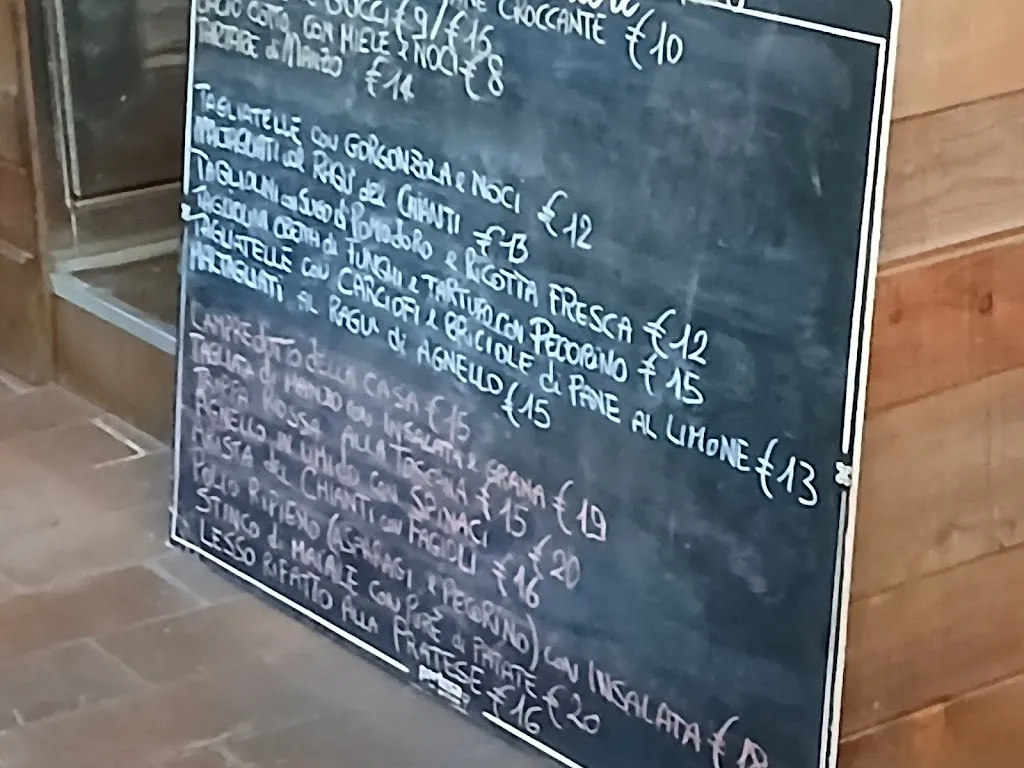 CROCCANTE €10
€9/€16
COTTO CON MIELE e NOCI €8
TARTARE di MANZO €14
TAGLIATELLE con GORGONZOLA e NOCI €12
MALTAGLIATI al RAGÙ del CHIANTI €13
TAGLIOLINI con SUGO di POMODORO e RICOTTA FRESCA €12
FUNGHI e TARTUFO CON PECORINO €15
TAGLIATELLE con CARCIOFI e BRICIOLE di PANE AL LIMONE €13
MALTAGLIATI AL RAGU' di AGNELLO €15
LAMPREDOTTO DELLA CASA €15
TAGLIATA di MANZO con INSALATA e GRANA €19
ROSSA ALLA TOSCANA €15
AGNELLO IN UMIDO CON SPINACI €20
ARISTA del CHIANTI con FAGIOLI €16
POLLO RIPIENO (ASPARAGI e PECORINO) con INSALATA €
STINCO di MAIALE CON PURÈ di PATATE €20
LESSO RIFATTO ALLA PRATESE €16